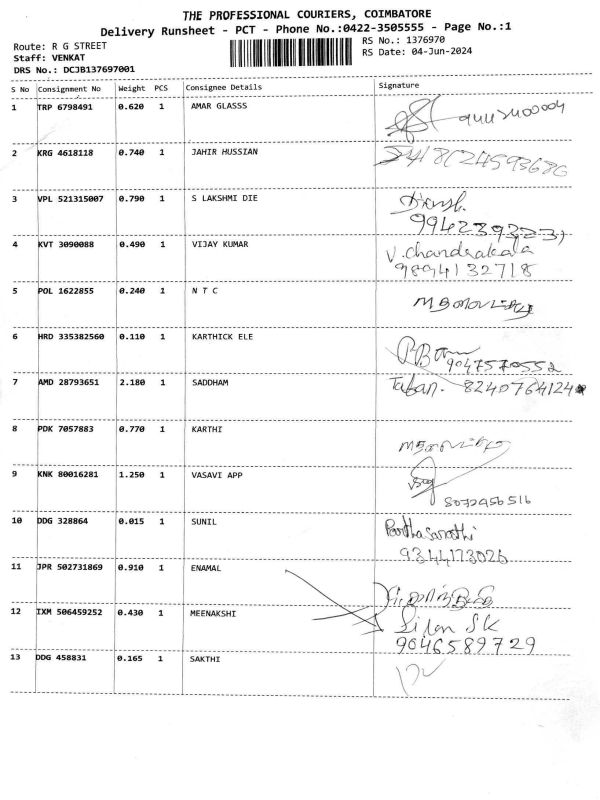 THE PROFESSIONAL COURIERS, COIMBATORE
Delivery Runsheet - PCT - Phone No.:0422-3505555 - Page No.:1
Route: R G STREET
RS No.: 1376970
Staff: VENKAT
RS Date: 04-Jun-2024
DRS No.: DCJB137697001
S No Consignment No Weight PCS Consignee Details Signature
1 TRP 6798491 0.620 1 AMAR GLASSS
2 KRG 4618118 0.740 1 JAHIR HUSSIAN
3 VPL 521315007 0.790 1 S LAKSHMI DIE
4 KVT 3090088 0.490 1 VIJAY KUMAR V. Chandrakala
9894132718
5 POL 1622855 0.240 1 N T C
6 HRD 335382560 0.110 1 KARTHICK ELE
9047570552
7 AMD 28793651 2.180 1 SADDHAM 8240764124
8 PDK 7057883 0.770 1 KARTHI
9 KNK 80016281 1.250 1 VASAVI APP
8072956516
10 DDG 328864 0.015 1 SUNIL Parthasarathi
9344173026
11 JPR 502731869 0.910 1 ENAMAL
12 IXM 506459252 0.430 1 MEENAKSHI SK
9046589729
13 DDG 458831 0.165 1 SAKTHI